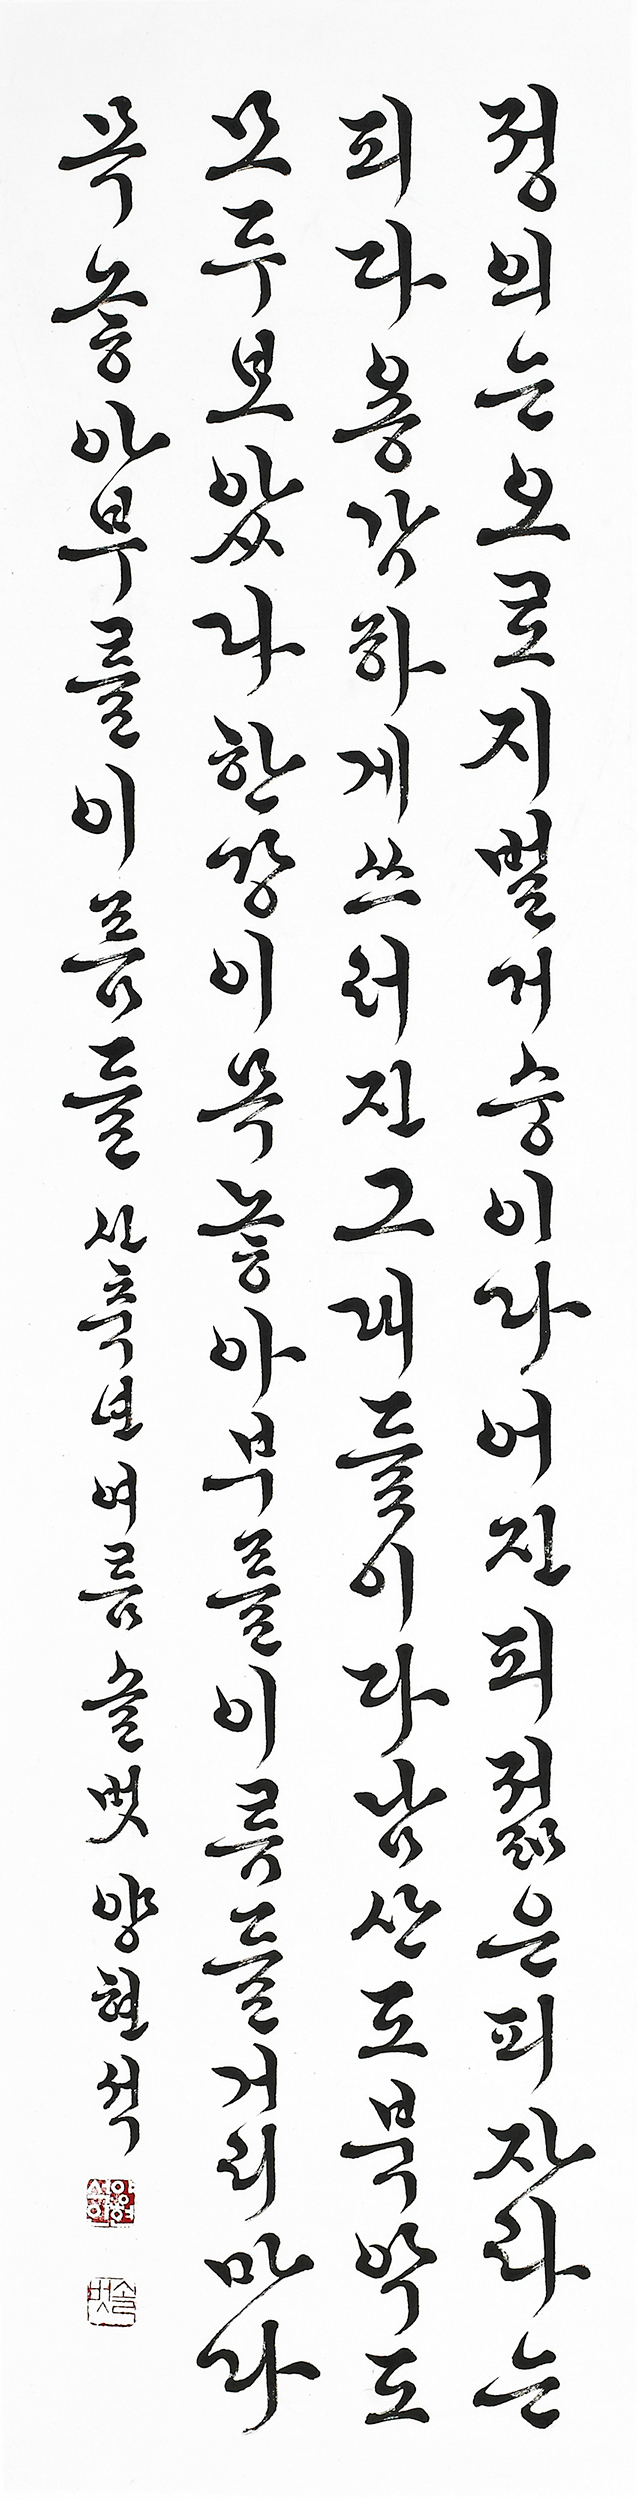 정의는오로지벌거숭이다어진피젊은피자라는
피다용감하게쓰러진그대들이다남산도북악도
모두보았다한강이목놓아부를이름들거리마다
목놓아부를이름들 신축년여름솔벗양현석
솔벗